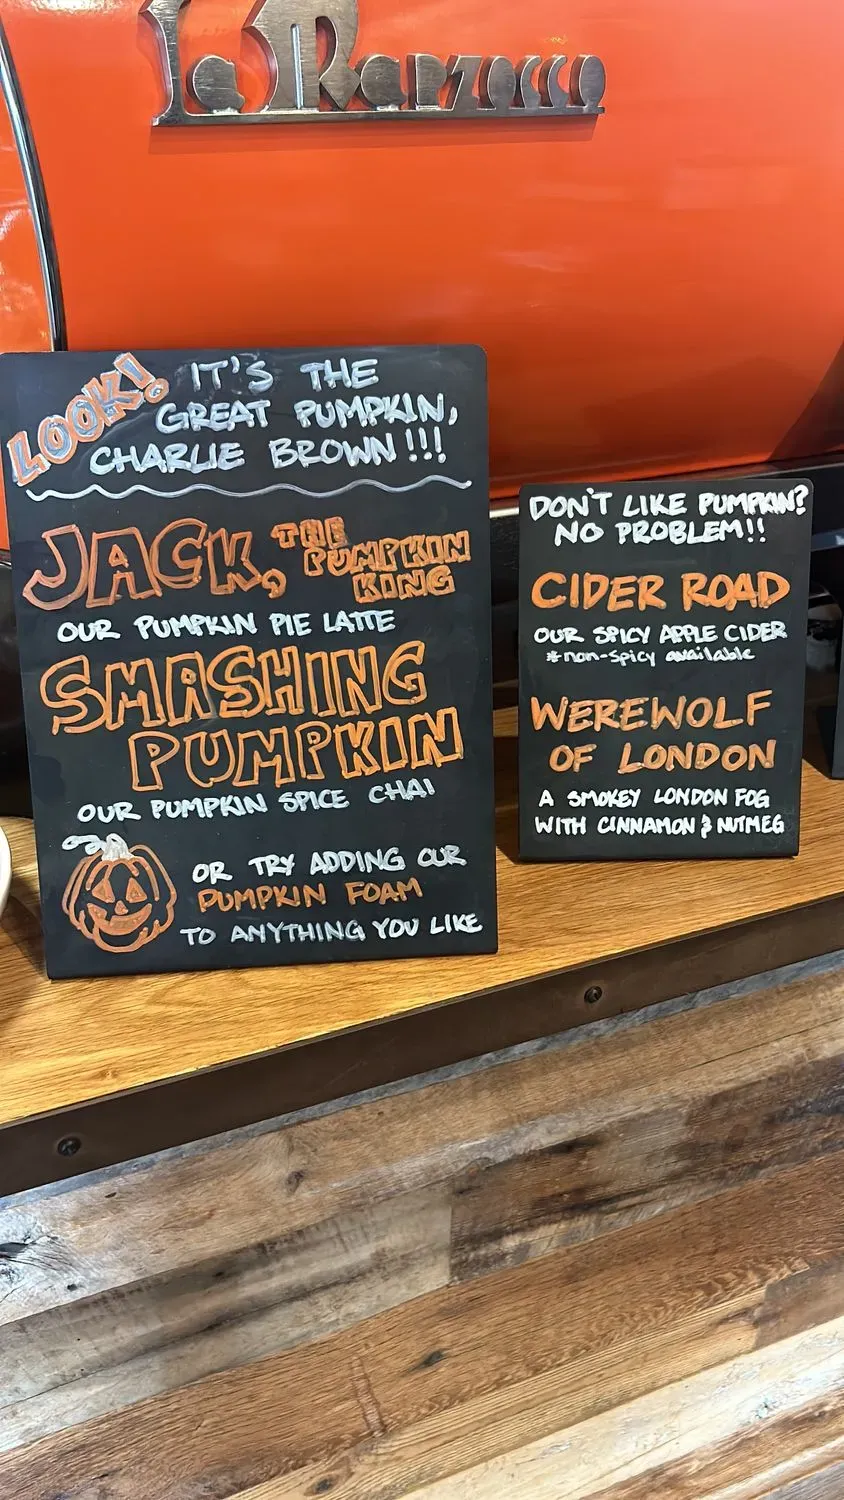 La Marzocco
LOOK! IT'S THE
GREAT PUMPKIN,
CHARLIE BROWN!!!
JACK, THE
PUMPKIN
KING
OUR PUMPKIN PIE LATTE
SMASHING
PUMPKIN
OUR PUMPKIN SPICE CHAI
OR TRY ADDING OUR
PUMPKIN FOAM
TO ANYTHING YOU LIKE
DON'T LIKE PUMPKIN?
NO PROBLEM!!
CIDER ROAD
OUR SPICY APPLE CIDER
*non-spicy available
WEREWOLF
OF LONDON
A SMOKEY LONDON FOG
WITH CINNAMON & NUTMEG